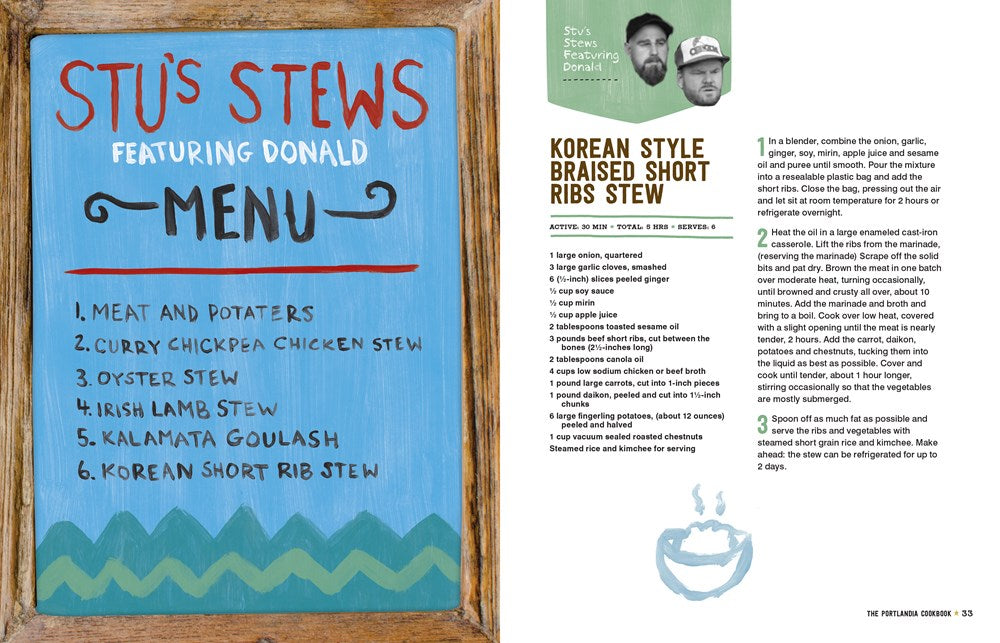 STU'S STEWS
FEATURING DONALD
MENU
1. MEAT AND POTATERS
2. CURRY CHICKPEA CHICKEN STEW
3. OYSTER STEW
4. IRISH LAMB STEW
5. KALAMATA GOULASH
6. KOREAN SHORT RIB STEW
Stu's
Stews
Featuring
Donald
KOREAN STYLE
BRAISED SHORT
RIBS STEW
ACTIVE: 30 MIN ★ TOTAL: 5 HRS ★ SERVES: 6
1 large onion, quartered
3 large garlic cloves, smashed
6 (½-inch) slices peeled ginger
½ cup soy sauce
½ cup mirin
½ cup apple juice
2 tablespoons toasted sesame oil
3 pounds beef short ribs, cut between the
bones (2½-inches long)
2 tablespoons canola oil
4 cups low sodium chicken or beef broth
1 pound large carrots, cut into 1-inch pieces
1 pound daikon, peeled and cut into 1½-inch
chunks
6 large fingerling potatoes, (about 12 ounces)
peeled and halved
1 cup vacuum sealed roasted chestnuts
Steamed rice and kimchee for serving
1 In a blender, combine the onion, garlic,
ginger, soy, mirin, apple juice and sesame
oil and puree until smooth. Pour the mixture
into a resealable plastic bag and add the
short ribs. Close the bag, pressing out the air
and let sit at room temperature for 2 hours or
refrigerate overnight.
2 Heat the oil in a large enameled cast-iron
casserole. Lift the ribs from the marinade,
(reserving the marinade) Scrape off the solid
bits and pat dry. Brown the meat in one batch
over moderate heat, turning occasionally,
until browned and crusty all over, about 10
minutes. Add the marinade and broth and
bring to a boil. Cook over low heat, covered
with a slight opening until the meat is nearly
tender, 2 hours. Add the carrot, daikon,
potatoes and chestnuts, tucking them into
the liquid as best as possible. Cover and
cook until tender, about 1 hour longer,
stirring occasionally so that the vegetables
are mostly submerged.
3 Spoon off as much fat as possible and
serve the ribs and vegetables with
steamed short grain rice and kimchee. Make
ahead: the stew can be refrigerated for up to
2 days.
THE PORTLANDIA COOKBOOK ★ 33